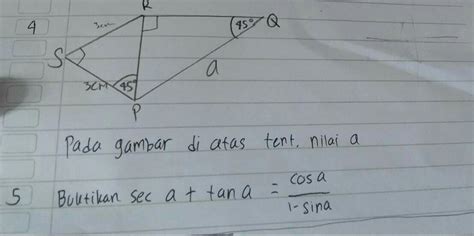 4
R
3cm
45°
Q
S
a
3cm
45°
P
Pada gambar di atas tent. nilai a
5 Buktikan sec a + tan a = cos a / 1 - sin a